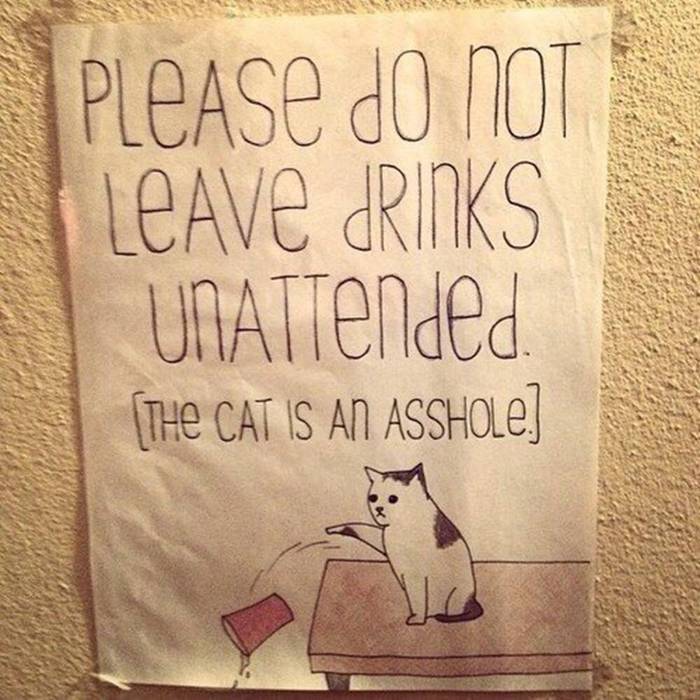 PLeASe dO nOT
LeAVe dRInKS
UnATTended.
[THe CAT IS An ASSHOLe.]